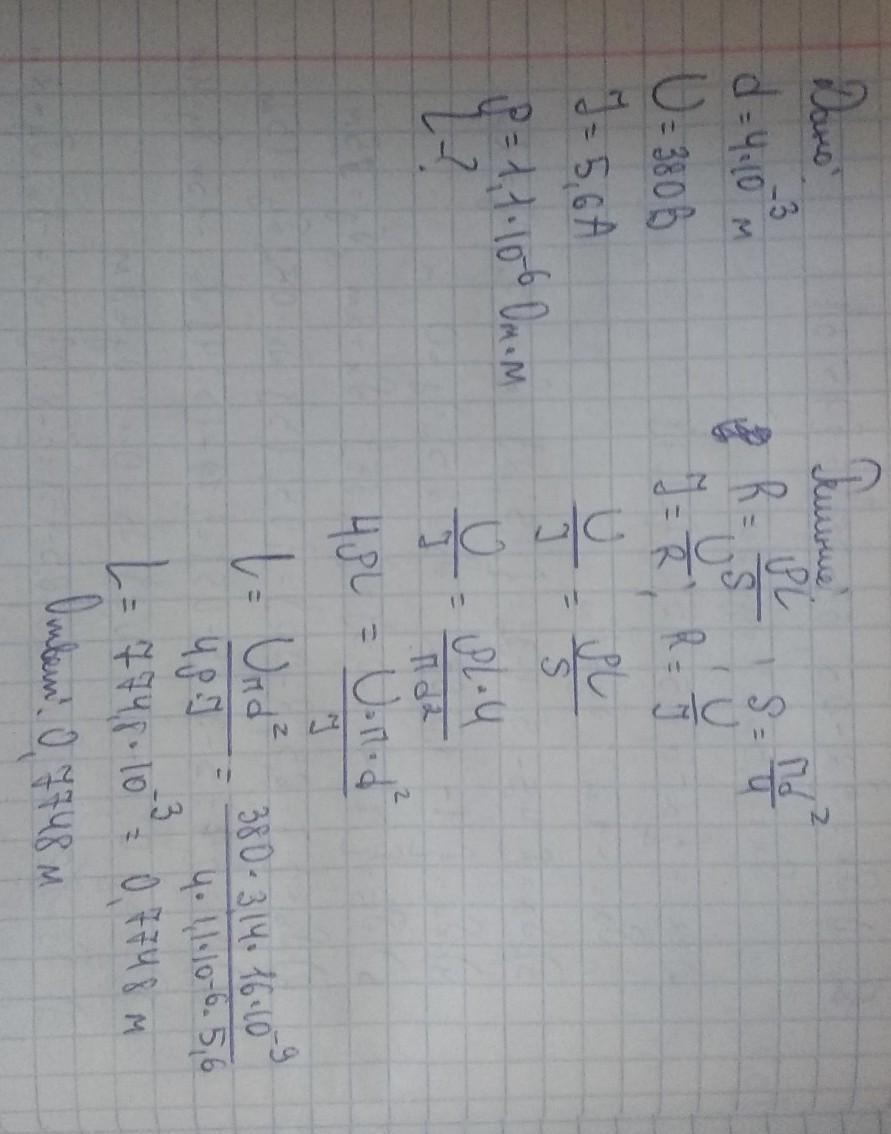 Дано:
d = 4·10⁻³ м
U = 380 В
J = 5,6 А
ρ = 1,1·10⁻⁶ Ом·м
L - ?
Решение:
R = ρL/S , S = πd²/4
J = U/R , R = U/J
U/J = ρL/S
U/J = ρL·4/πd²
4ρL = U·π·d²/J
L = Uπd²/4ρJ = 380·3,14·16·10⁻⁹/4·1,1·10⁻⁶·5,6
L = 774,8·10⁻³ = 0,7748 м
Ответ: 0,7748 м